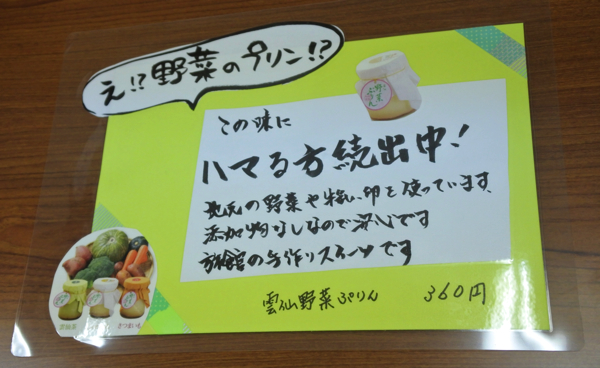 え!?野菜のプリン!?
この味に
ハマる方続出中!
地元の野菜や強い卵を使っています。
添加物なしなので安心です
旅館の手作りスイーツです
雲仙野菜ぷりん 360円